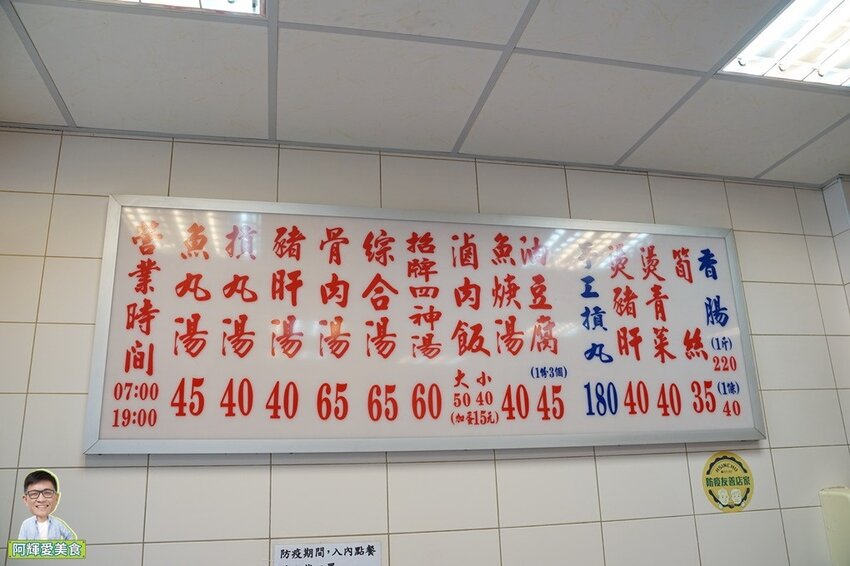 營業時間 07:00 19:00
魚丸湯 45
損丸湯 40
豬肝湯 40
骨肉湯 65
綜合湯 65
招牌四神湯 60
滷肉飯 大50 小40 (加蛋15元)
魚焿湯 40
油豆腐 (1份3個) 45
手工損丸 180
燙豬肝 40
燙青菜 40
筍絲 35
香腸 (1斤) 220 (1條) 40
防疫友善店家
防疫期間,入內點餐
阿輝愛美食